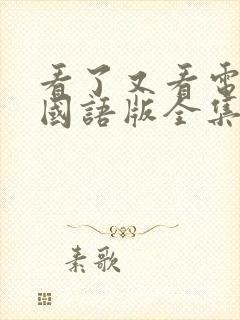 看了又看電
國語版全集
素歌